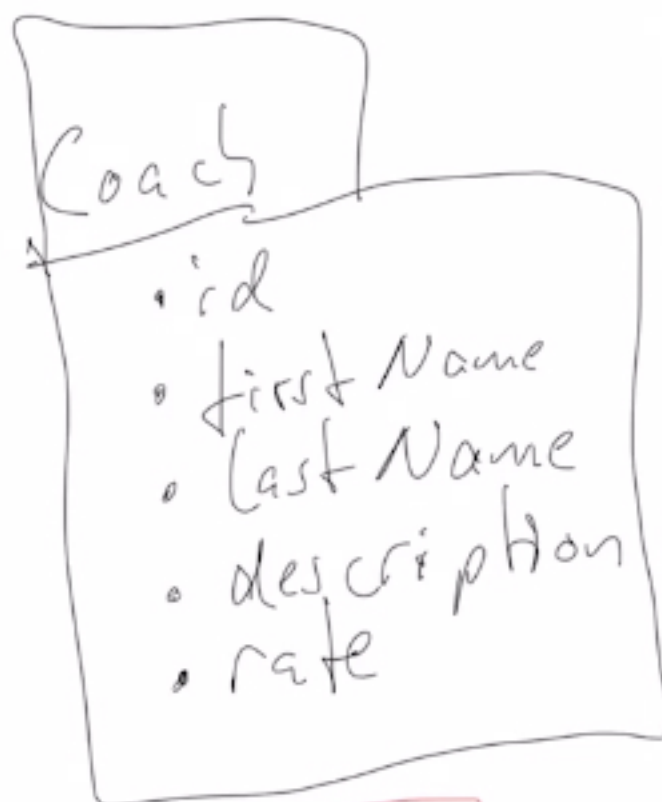 Coach
• id
• first Name
• last Name
• description
• rate